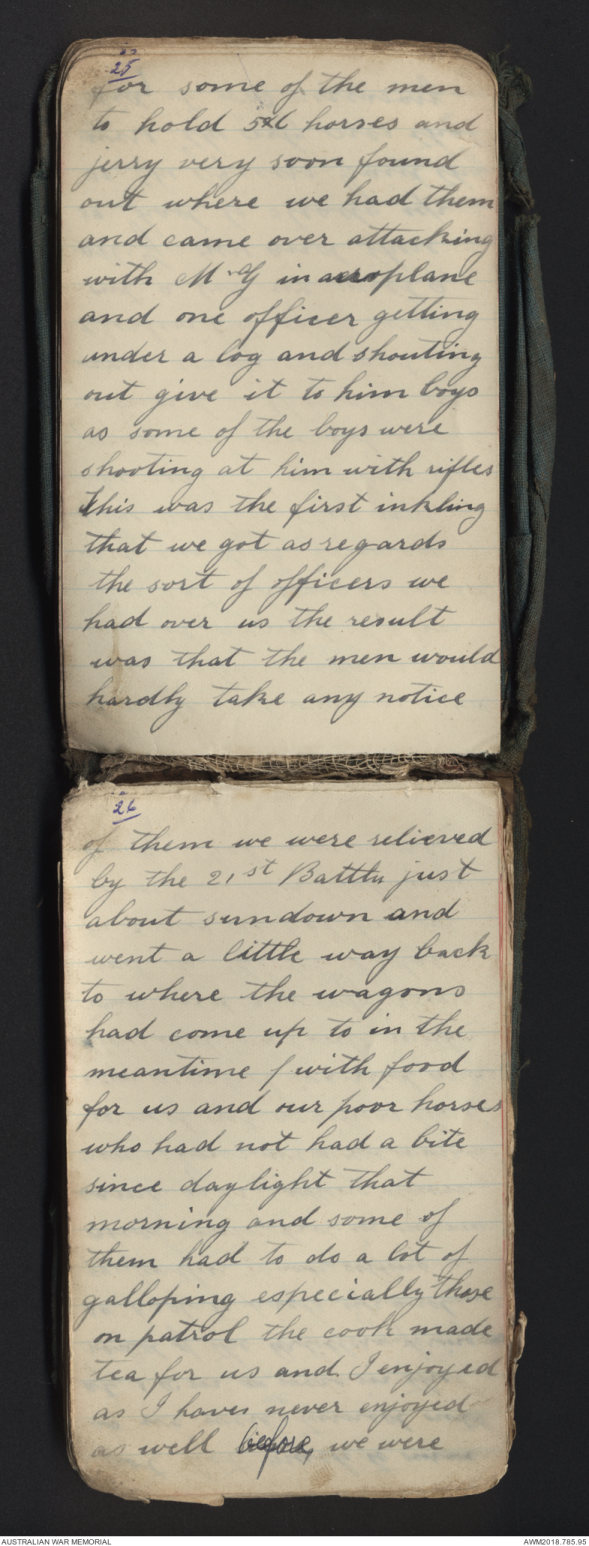 25
for some of the men
to hold 5x6 horses and
jerry very soon found
out where we had them
and came over attacking
with M.G in aeroplane
and one officer getting
under a log and shouting
out give it to him boys
as some of the boys were
shooting at him with rifles
this was the first inkling
that we got as regards
the sort of officers we
had over us the result
was that the men would
hardly take any notice
26
of them we were relieved
by the 21st Battln just
about sundown and
went a little way back
to where the wagons
had come up to in the
meantime / with food
for us and our poor horses
who had not had a bite
since daylight that
morning and some of
them had to do a lot of
galloping especially those
on patrol the cook made
tea for us and I enjoyed
as I have never enjoyed
as well before, we were
AUSTRALIAN WAR MEMORIAL
AWM2018.785.95